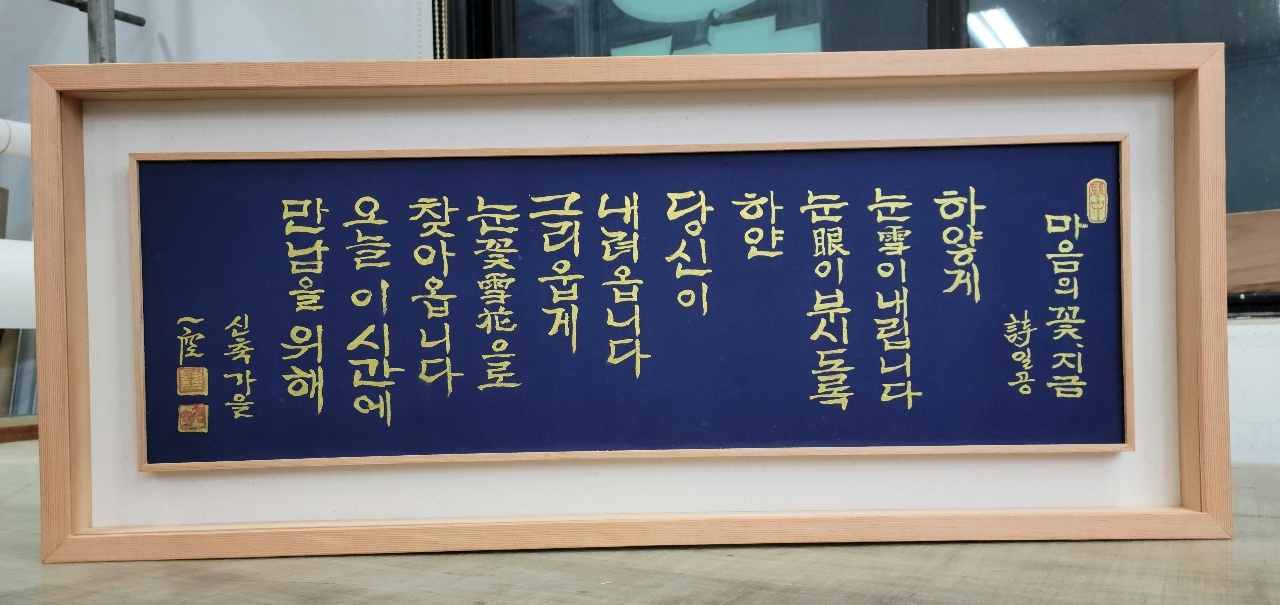 마음의 꽃, 지금
詩 일공
하얗게
눈雪이 내립니다
눈眼이 부시도록
하얀
당신이
내려옵니다
그리웁게
눈꽃雪花으로
찾아옵니다
오늘 이 시간에
만남을 위해
신축 가을